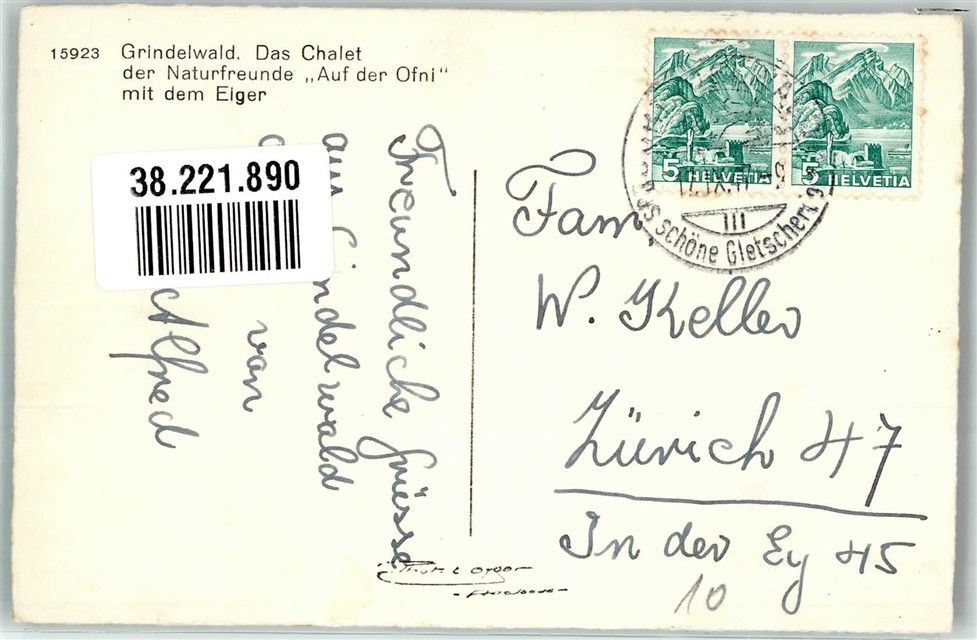 15923 Grindelwald. Das Chalet
der Naturfreunde „Auf der Ofni"
mit dem Eiger
38.221.890
Freundliche Grüsse
aus Grindelwald
von
Alfred
5 HELVETIA
5 HELVETIA
schöne Gletscher
Fam.
W. Keller
Zürich 47
In der Ey 45
10